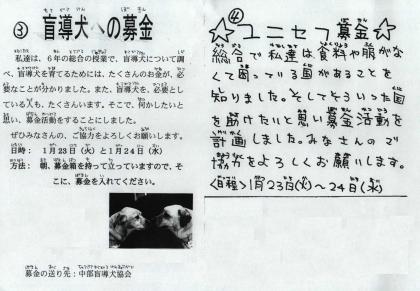 ③ 盲導犬への募金
私達は、6年の総合の授業で、盲導犬について調
べ、盲導犬を育てるためには、たくさんのお金が、必
要なことが分かりました。また、盲導犬を、必要とし
ている人も、たくさんいます。そこで、何かしたいと
思い、募金活動をすることにしました。
ぜひみなさんの、ご協力をよろしくお願いします。
日時： 1月23日（火）と1月24日（水）
方法： 朝、募金箱を持って立っていますので、そ
こに、募金を入れてください。
募金の送り先：中部盲導犬協会
④
☆ユニセフ募金☆
総合で私達は食料や服がな
くて困っている国があることを
知りました。そしてそういった国
を助けたいと思い募金活動を
計画しました。みなさんのご
協力をよろしくお願いします。
〈日程〉1月23日(火)〜24日(水)